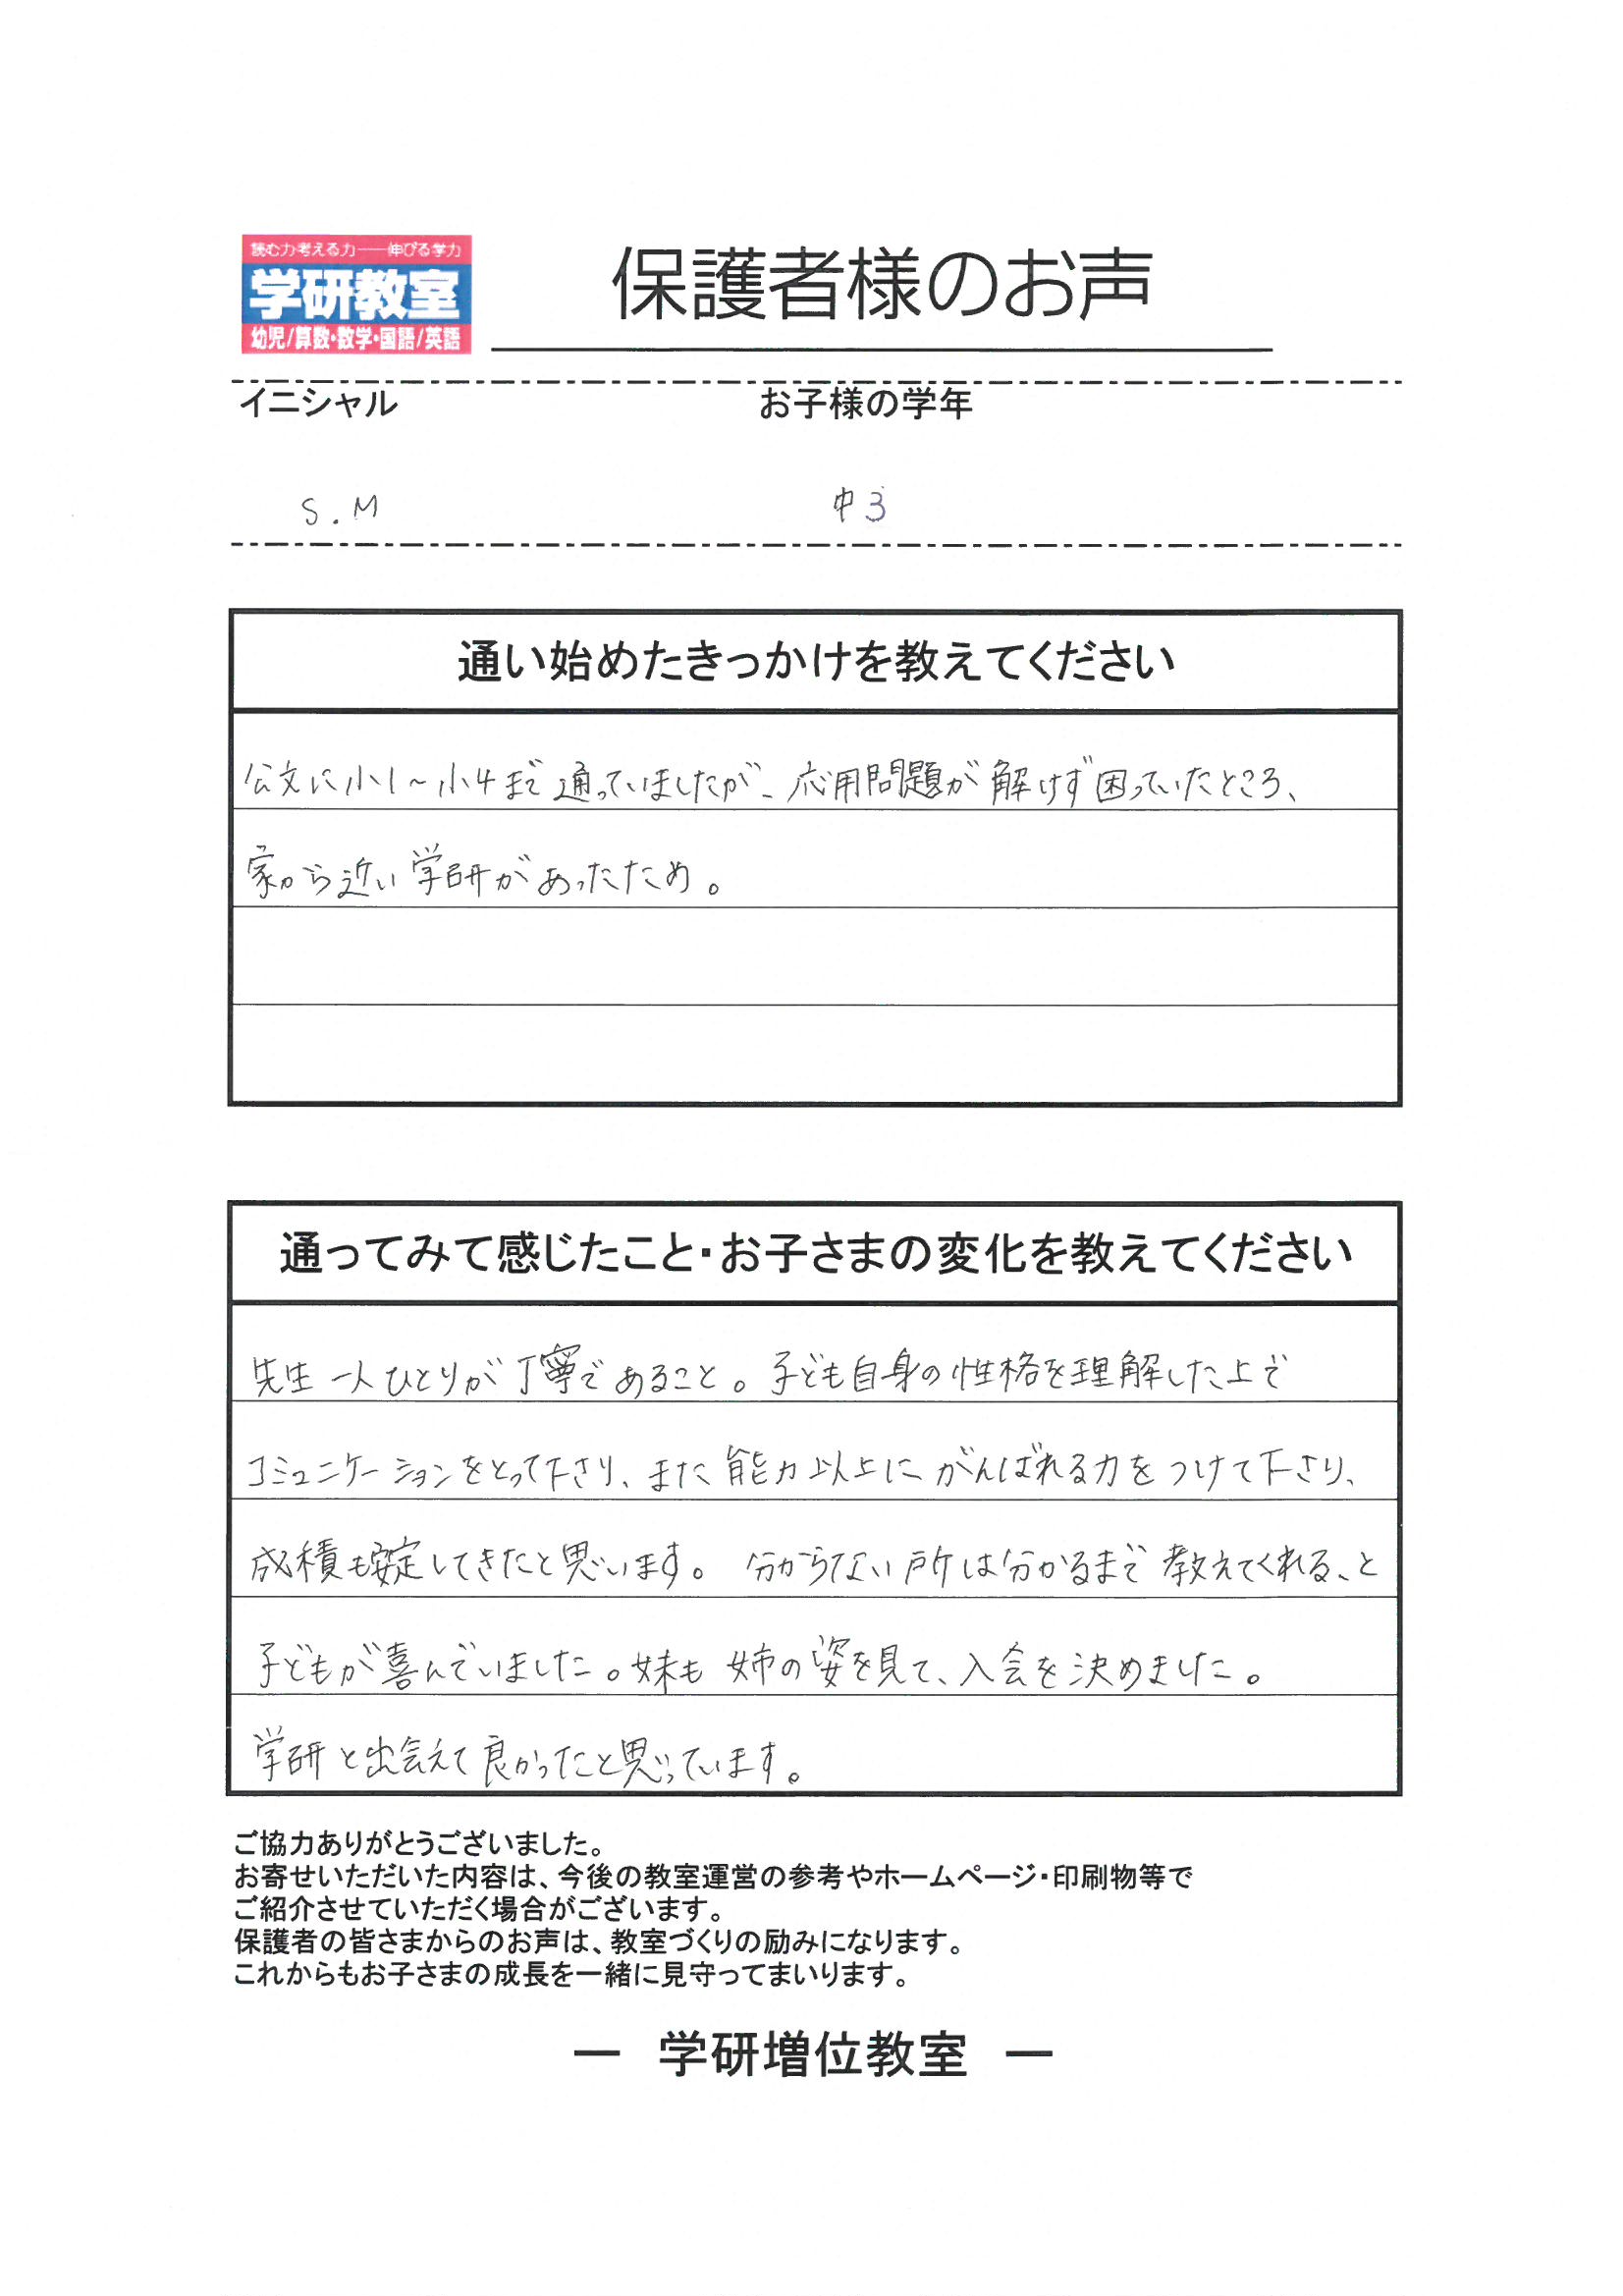 読む力考える力──伸びる学力
学研教室
幼児/算数・数学・国語/英語
保護者様のお声
イニシャル
お子様の学年
S.M
中3
通い始めたきっかけを教えてください
公文に小1～小4まで通っていましたが、応用問題が解けず困っていたところ、
家から近い学研があったため。
通ってみて感じたこと・お子さまの変化を教えてください
先生一人ひとりが丁寧であること。子ども自身の性格を理解した上で
コミュニケーションをとって下さり、また能力以上にがんばれる力をつけて下さり、
成積も安定してきたと思います。分からない所は分かるまで教えてくれる、と
子どもが喜んでいました。妹も姉の姿を見て、入会を決めました。
学研と出会えて良かったと思っています。
ご協力ありがとうございました。
お寄せいただいた内容は、今後の教室運営の参考やホームページ・印刷物等で
ご紹介させていただく場合がございます。
保護者の皆さまからのお声は、教室づくりの励みになります。
これからもお子さまの成長を一緒に見守ってまいります。
― 学研増位教室 ―